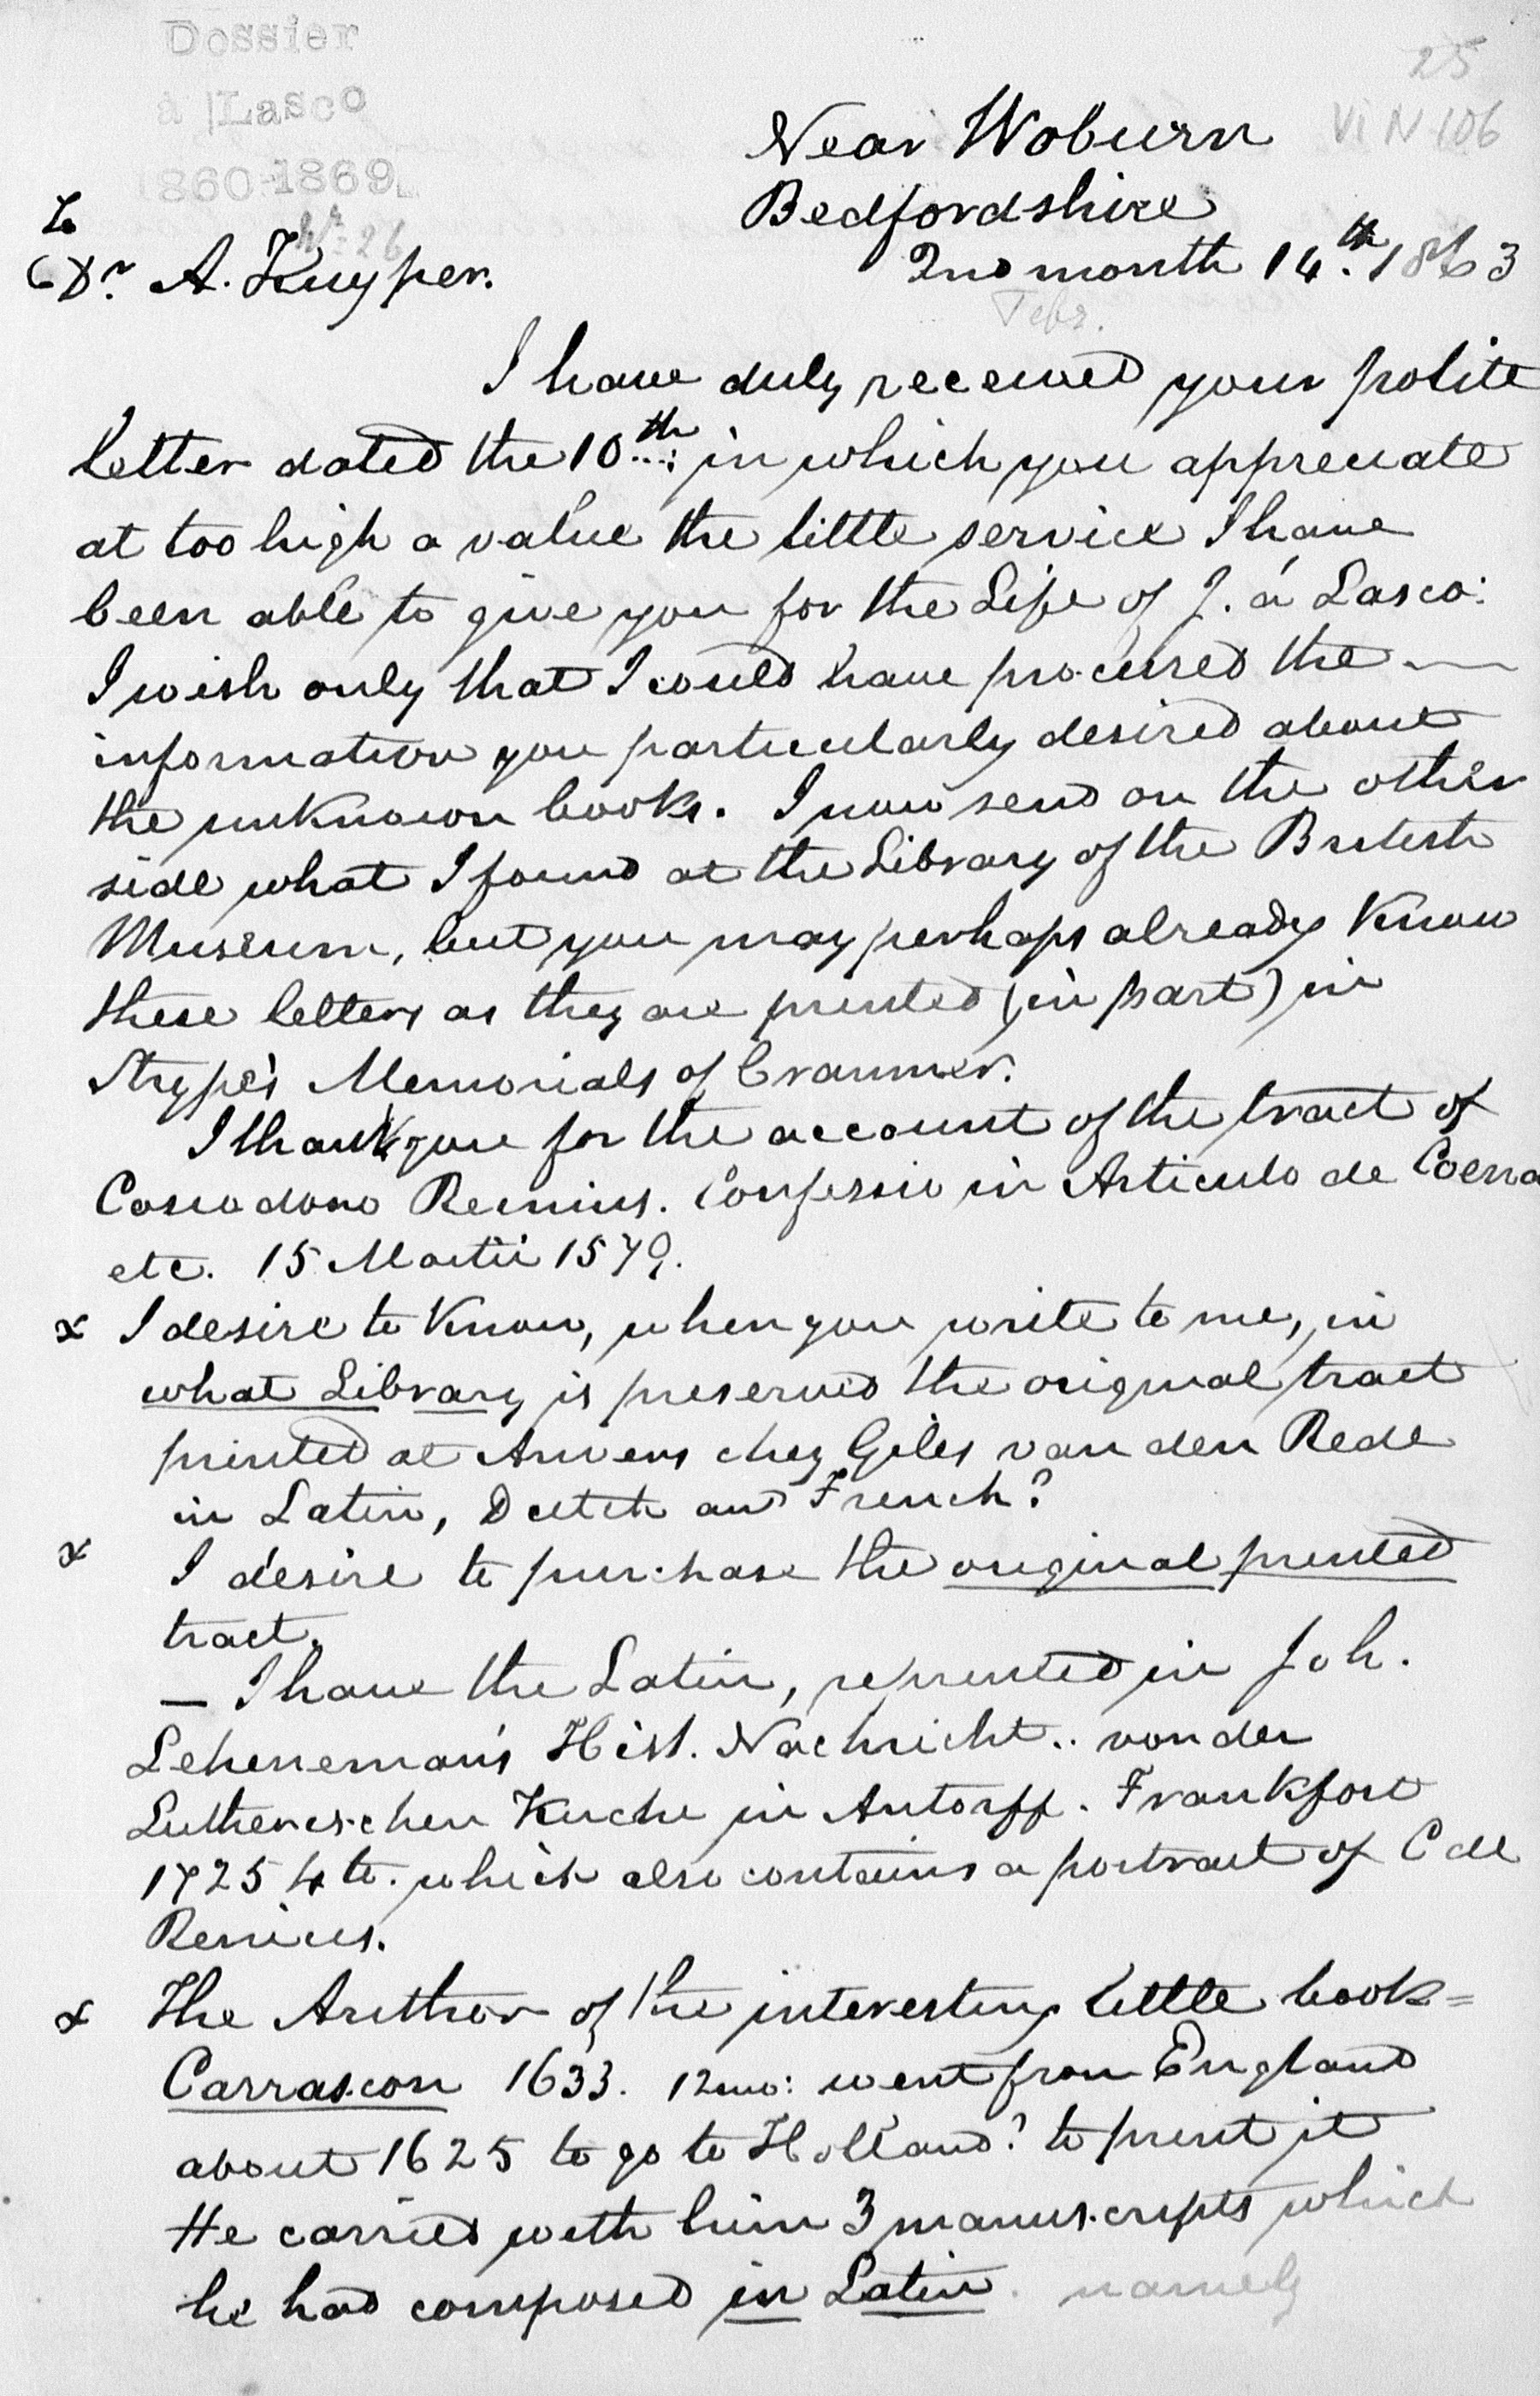 Dossier
à Lasco
1860-1869
No 26
25
VI N 106
Near Woburn
Bedfordshire
2nd month 14th. 1863
Febr.
To
Dr. A. Kuyper.
I have duly received your polite
letter dated the 10th: in which you appreciate
at too high a value the little service I have
been able to give you for the Life of J. á Lasco:
I wish only that I could have procured the —
information you particularly desired about
the unknown books. I now send on the other
side what I found at the Library of the British
Museum, but you may perhaps already know
these letters as they are printed (in part) in
Strype's Memorials of Cranmer.
I thank you for the account of the tract of
Cassiodoro Reinius. Confessio in Articulo de Coena
etc. 15 Martii 1579.
x I desire to know, when you write to me, in
what Library is preserved the original tract
printed at Anvers chez Giles van den Rade
in Latin, Dutch and French?
x I desire to purchase the original printed
tract.
— I have the Latin, reprinted in Joh.
Leheneman's Hist. Nachricht.. von der
Lutherischen Kirche in Antorff. Frankfort
1725 4to. which also contains a portrait of C de
Reinius.
x The Author of the interesting little book=
Carrascon 1633. 12mo: went from England
about 1625 to go to Holland? to print it
He carried with him 3 manuscripts which
he had composed in Latin. namely